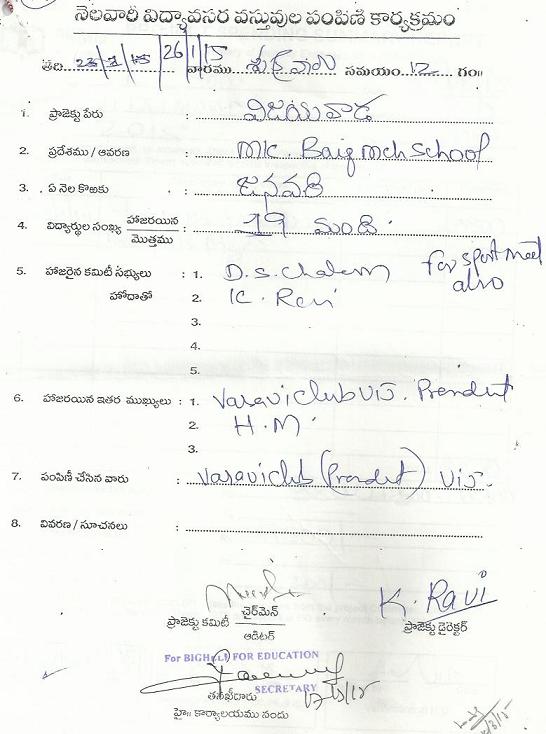 నెలవారీ విద్యావసర వస్తువుల పంపిణి కార్యక్రమం
తేది 23/1/15 26/1/15 వారము శుక్రవారం సమయం 12 గం॥
1. ప్రాజెక్టు పేరు : విజయవాడ
2. ప్రదేశము / ఆవరణ : MK. Baig Mch School
3. ఏ నెల కొఱకు : జనవరి
4. విద్యార్థుల సంఖ్య హాజరయిన / మొత్తము : 19 మంది
5. హాజరైన కమిటీ సభ్యులు : 1. D.S. Chalam for sport meet
హోదాతో 2. K. Ravi also
3.
4.
5.
6. హాజరయిన ఇతర ముఖ్యులు : 1. Vasavi Club VIJ.
2. H.M.
3.
7. పంపిణీ చేసిన వారు : Vasavi Club VIJ.
8. వివరణ / సూచనలు :
K. Ravi
ప్రాజెక్టు కమిటీ చైర్‌మెన్ / ఆడిటర్ ప్రాజెక్టు డైరెక్టర్
For BIGHELP FOR EDUCATION
SECRETARY
తనిఖీదారు
హై॥ కార్యాలయము నందు